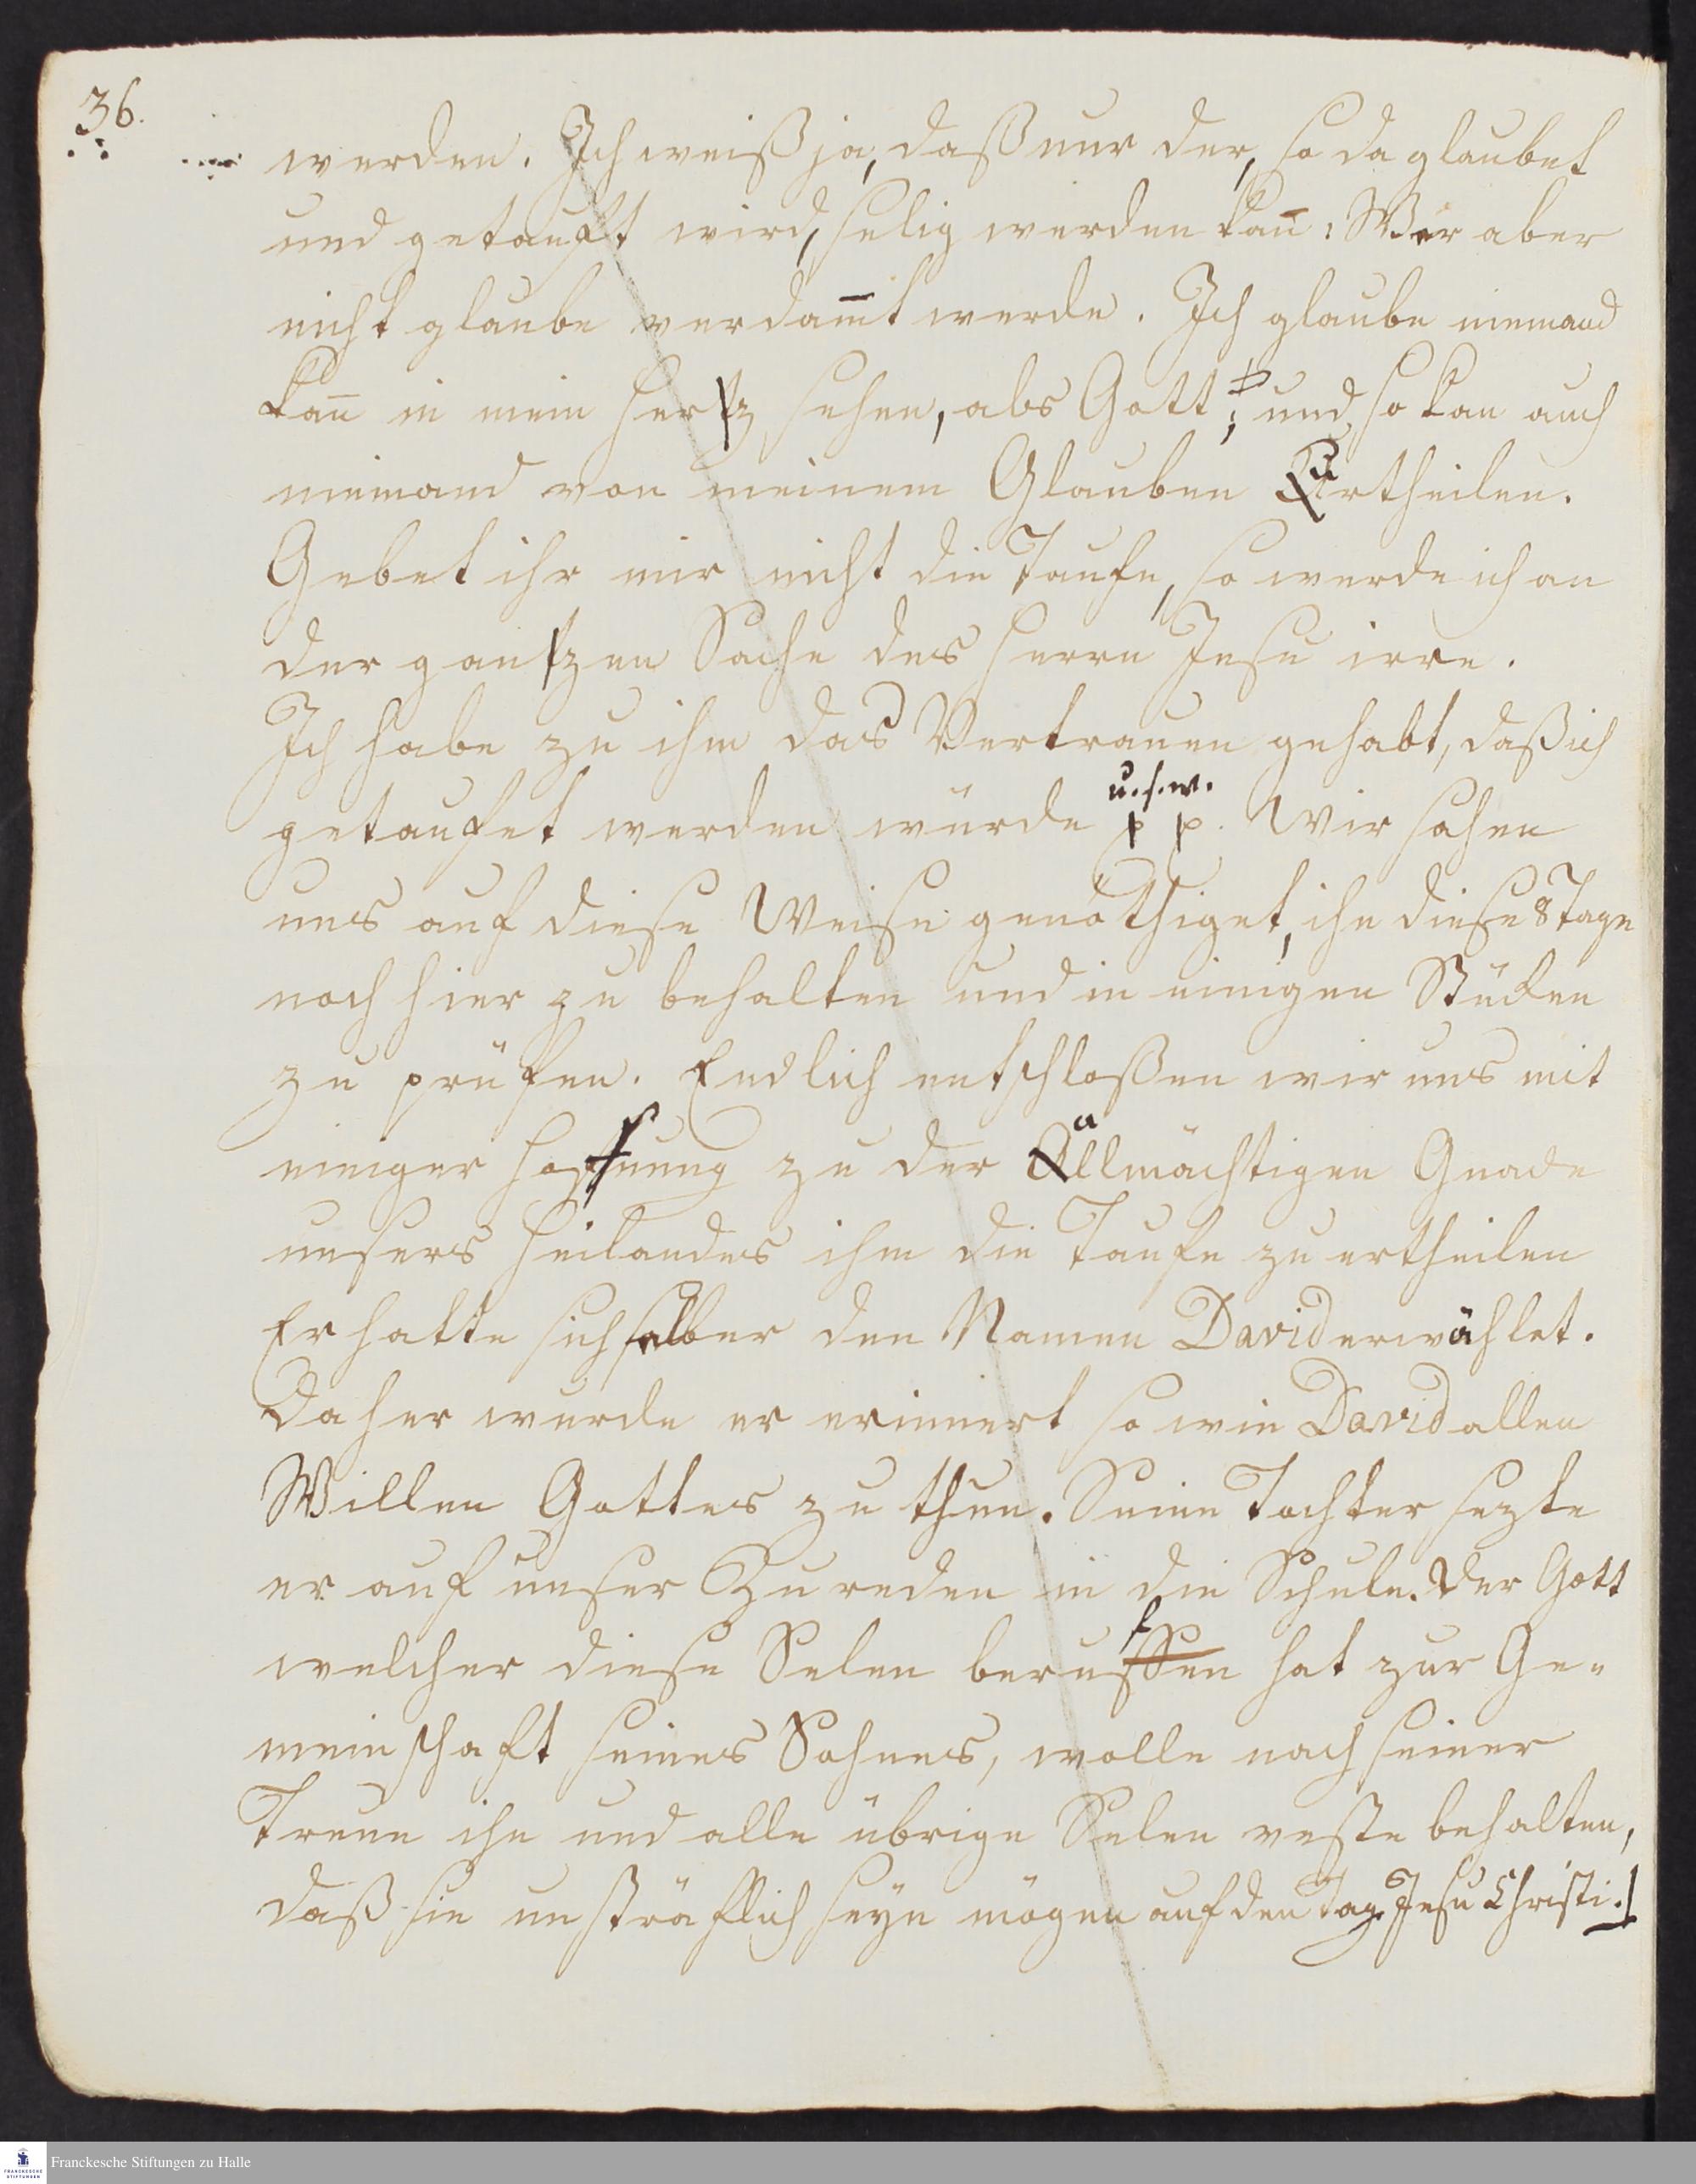 36.
werden. Ich weiß ja, daß nur der, so da glaubet
und getauft wird, selig werden kan̄: Wer aber
nicht glaube verdam̄t werde. Ich glaube niemand
kan̄ in mein Hertz sehen, als Gott; und so kan auch
niemand von meinem Glauben Urtheilen.
Gebet ihr mir nicht die Taufe, so werde ich an
der gantzen Sache des Herrn Jesu irre.
Ich habe zu ihm das Vertrauen gehabt, daß ich
u. s. w.
getaufet werden würde p p. Wir sahen
uns auf diese Weise genöthiget, ihn diese 8 Tage
noch hier zu behalten und in einigen Stücken
zu prüfen. Endlich entschloßen wir uns mit
einiger Hofnung zu der Allmächtigen Gnade
unsers Heilandes ihm die Taufe zu ertheilen
Er hatte sich selber den Namen David erwählet.
Daher wurde er erinnert so wie David allen
Willen Gottes zu thun. Seine Tochter sezte
er auf unser Zureden in die Schule. Der Gott
welcher diese Selen beruffen hat zur Ge-
meinschaft seines Sohnes, wolle nach seiner
Treue ihn und alle übrige Selen veste behalten,
daß sie unsträflich seyn mögen auf den Tag Jesu Christi!
Franckesche Stiftungen zu Halle